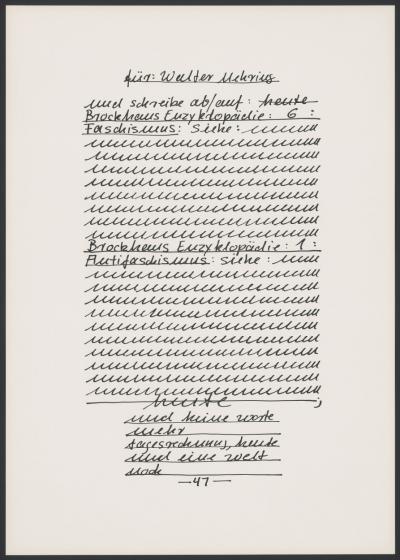 für: Walter Mehring
und schreibe ab/auf: heute
Brockhaus Enzyklopädie: 6:
Faschismus: siehe:
Brockhaus Enzyklopädie: 1:
Antifaschismus: siehe:
heute ;
und keine worte
mehr
tagesrechnung, heute
und eine welt
nach
—47—